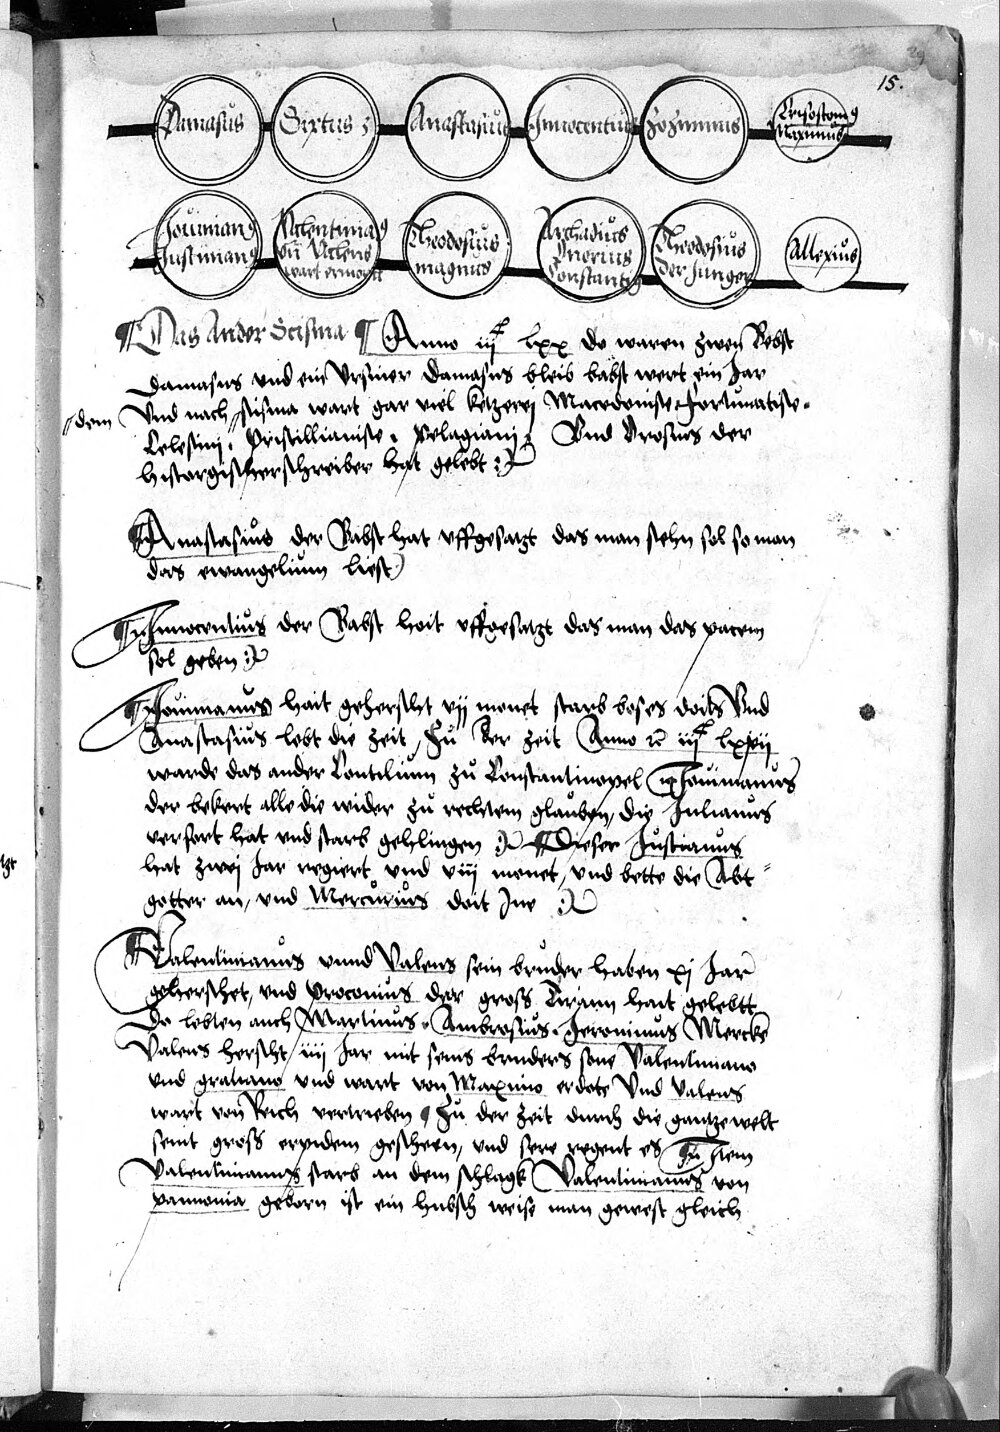 29
15.
Damasus Sixtus 3 Anastasius Innocentius Zozimus Crisostomꝰ
Maximus
Jouinianꝰ Valentinianꝰ Theodosius Archadius Theodosius Allexius
Justinianꝰ vn̄ Valens magnus Honorius der Junger
wart ermordt Constantiꝰ
¶ Das Ander Scisma ¶ Anno iijᶜ lxx do waren zwen Bebst
Damasus vnd ein Vrsiner Damasus bleib babst wert ein Jar
Vnd nach dem scisma wart gar viel ketzerej Macedoniste Fortunatiste
Celestini. Priscillianiste. Pelagianj Vnd Orosius der
historgischerschreiber hat gelebt
¶ Anastasius der Babst hat vffgesatzt das man stehn sol so man
das ewangelium liest
¶ Innocentius der Babst hait vffgesatzt das man das pacem
sol geben
¶ Jouinianus hait geherscht vij monet starb boses doits Vnd
Anastasius lebt die zeit, Zu der zeit Anno iijᶜ lxvij
warde das ander Concilium zu Constantinopel Jouinianus
der bekert alle die wider zu rechtem glauben, die Julianus
verfort hat vnd starb gehlingen ¶ Dieser Justianus
hat zwej Jar regiert vnd viij monet, vnd bette die Abt
gotter an, vnd Mercurius doit Jne
¶ Valentinianus vnnd Valens sein bruder haben xj Jar
geherschet, vnd Proconius der gross Tirann hait gelebtt
Do lebten auch Martinus. Ambrosius. Jeronimus Mercke
Valens herscht iiij Jar mit seins bruders sone Valentiniano
vnd gratiano vnd wart von Maximo erdote Vnd Valens
wart von Reich vertrieben ¶ Zu der zeit durch die gantze welt
seint gross erpidem gescheen, vnd sere regent es Jtem
Valentinianus starb an dem schlagk Valentinianus von
pannonia geborn ist ein hubsch weise man gewest gleich